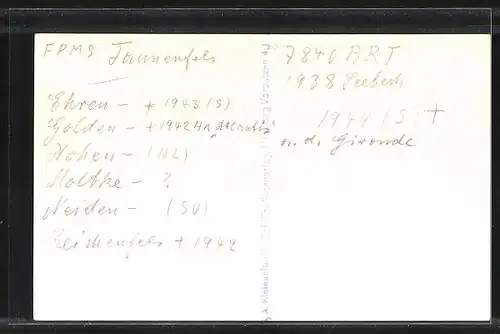 FPMS Tannenfels
Ehren - + 1943 (S)
Golden - + 1942 Ha "Atlantis"
Hohen - (NL)
Moltke - ?
Neiden - (SU)
Reichenfels + 1942
7840 BRT
1938 Seebeck
1944 (S) +
a. d. Gironde